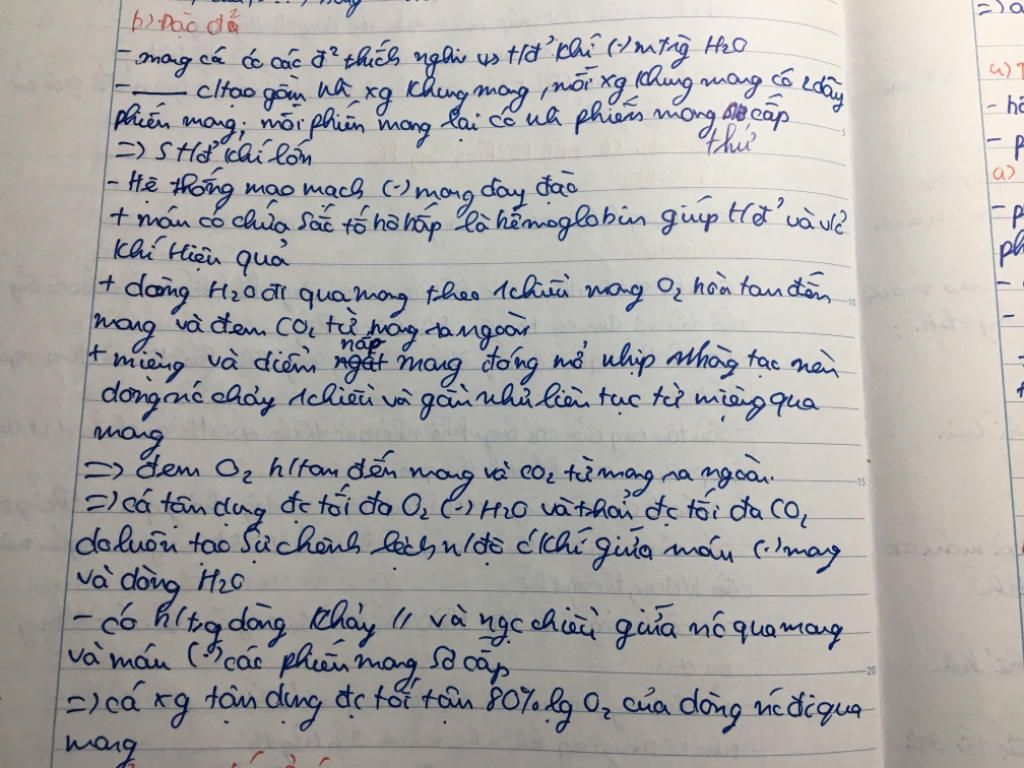 b) Đặc đ²
- mang cá có các đ² thích nghi vs tđ² khí (-) mtrg H₂O
- —— c/tạo gồm nh xg khung mang, mỗi xg khung mang có 2 dãy
phiến mang; mỗi phiến mang lại có nh phiến mang cấp
thứ
=> S tđ² khí lớn
- Hệ thống mao mạch (-) mang dày đặc
+ máu có chứa sắc tố hô hấp là hêmoglobin giúp tđ² và v/c
khí hiệu quả
+ dòng H₂O đi qua mang theo 1 chiều mang O₂ hòa tan đến
mang và đem CO₂ từ mang ra ngoài
nắp
+ miệng và diềm mang đóng mở nhịp nhàng tạo nên
dòng nc chảy 1 chiều và gần như liên tục từ miệng qua
mang
=> đem O₂ h/tan đến mang và CO₂ từ mang ra ngoài.
=> cá tận dụng đc tối đa O₂ (-) H₂O và thải đc tối đa CO₂
do luôn tạo sự chênh lệch n/độ c/khí giữa máu (-) mang
và dòng H₂O
- có h/tg dòng chảy // và ngc chiều giữa nc qua mang
và máu (-) các phiến mang sơ cấp
=> cá xg tận dụng đc tới tận 80% lg O₂ của dòng nc đi qua
mang
=> a
a)
- h
- p
a)
- p
ph